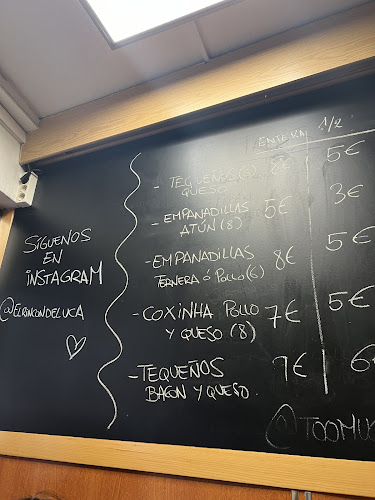 SÍGUENOS
EN
INSTAGRAM
@ELRINCONDELUCA
ENTERA 1/2
- TEQUEÑOS QUESO 8€ 5€
- EMPANADILLAS
ATÚN (8) 5€ 3€
- EMPANADILLAS
TERNERA Ó POLLO (6) 8€ 5€
- COXINHA POLLO
Y QUESO (8) 7€ 5€
- TEQUEÑOS
BACON Y QUESO. 9€ 6
@TOOMU